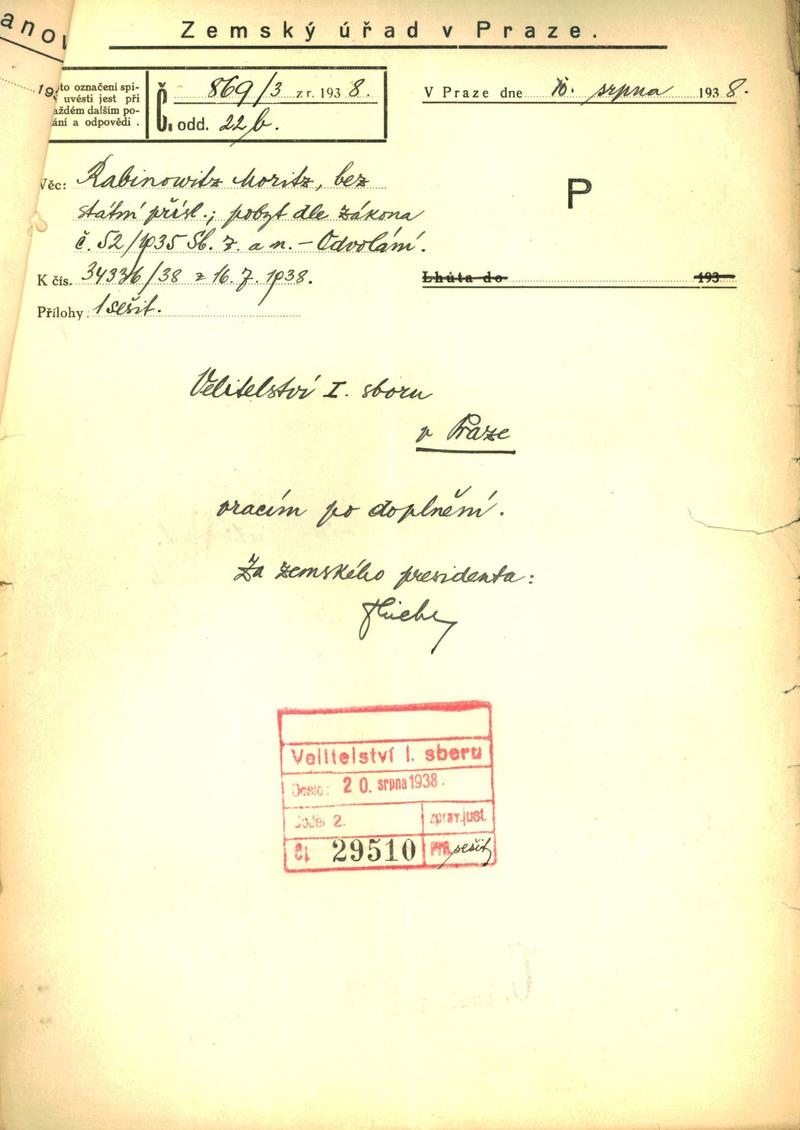 Zemský úřad v Praze.
anov
19
to označení spi-
uvésti jest při
aždém dalším po-
ání a odpovědi.
Č. 869/3 z r. 1938.
odd. 22b.
V Praze dne srpna 1938.
Věc: Rabinowitz Moritz, bez
státní přísl.; pobyt dle zákona
č. 52/1935 Sb. z. a n. – Odvolání.
P
K čís. 34336/38 z 16. 7. 1938.
Lhůta do 193
Přílohy: 1 sešit.
Velitelství I. sboru
v Praze
vracím po doplnění.
Za zemského presidenta:
Velitelství I. sboru
Došlo: 20. srpna 1938.
Odděl 2. zprav.just.
Čj. 29510 Příl. sešit